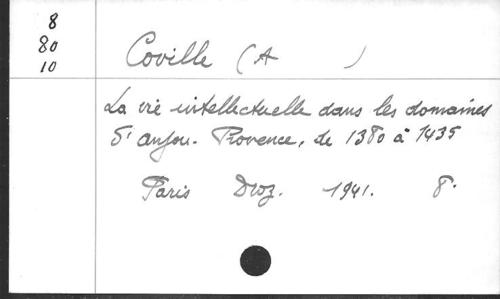 8
80
10
Coville (A )
La vie intellectuelle dans les domaines
d'Anjou-Provence, de 1380 à 1435
Paris Droz. 1941. 8°.